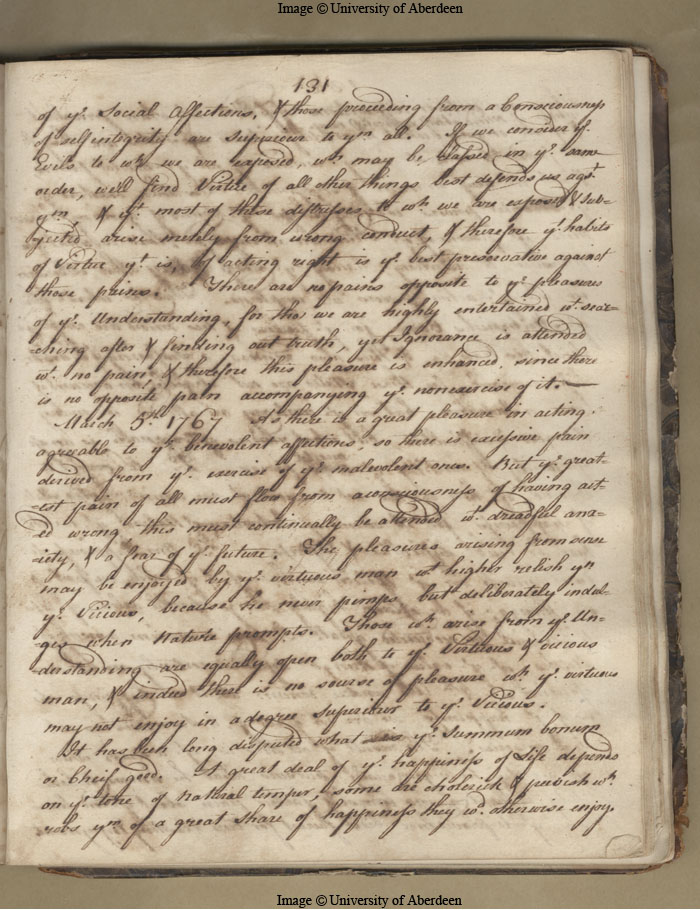 Image © University of Aberdeen
131
of yͬ Social Affections, & those proceeding from a Consciousness
of self integrity are superiour to yᵐ all. If we consider yͤ
Evils to wʰ we are exposed, wʰ may be classed in yͤ same
order, we'll find Virtue of all other things best defends us agᵗ
yᵐ, & yᵗ most of these distresses to wʰ we are exposed & sub-
jected arise merely from wrong conduct, & therefore yͤ habits
of Virtue yᵗ is, of acting right is yͤ best preservative against
those pains. There are no pains opposite to yͤ pleasures
of yͤ Understanding, for tho' we are highly entertained wᵗ sear-
ching after & finding out truth, yet Ignorance is attended
wᵗ no pain, & therefore this pleasure is enhanced since there
is no opposite pain accompanying yͤ nonexercise of it.
March 5ᵗ 1767 As there is a great pleasure in acting
agreable to yͤ benevolent affections, so there is excessive pain
derived from yͤ exercise of yͤ malevolent ones. But yͤ great-
est pain of all must flow from a consciousness of having act-
ed wrong this must continually be attended wᵗ dreadful anx-
iety, & a fear of yͤ future. The pleasures arising from sense
may be enjoyed by yͤ virtuous man wᵗ higher relish yⁿ
yͤ Vicious, because he never pimps but deliberately indul-
ges when Nature prompts. Those wʰ arise from yͤ Un-
derstanding are equally open both to yͤ Virtuous & vicious
man, & indeed there is no source of pleasure wʰ yͤ virtuous
may not enjoy in a degree superior to yͤ Vicious.
It has been long disputed what is yͤ summum bonum
or Cheif good. A great deal of yͤ happiness of Life depends
on yͤ tone of natural temper, some are cholerick & peevish wʰ
robs yᵐ of a great share of happiness they wᵈ otherwise enjoy.
Image © University of Aberdeen